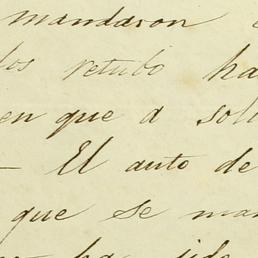 mandaron
los retubo ha
en que a sol
— El auto de
que se man
ha sido